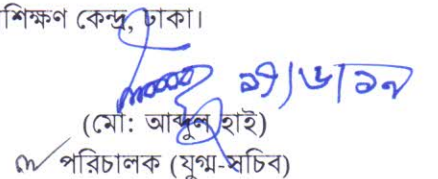 শিক্ষণ কেন্দ্র, ঢাকা।
(মো: আব্দুল হাই)
পরিচালক (যুগ্ম-সচিব)